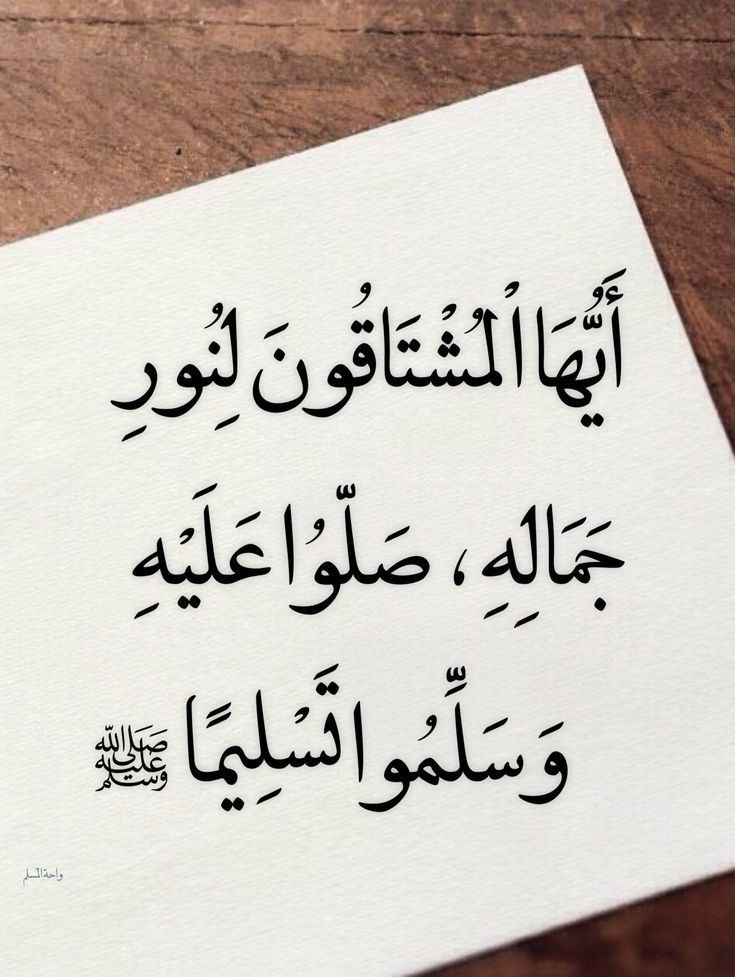 أَيُّهَا الْمُشْتَاقُونَ لِنُورِ
جَمَالِهِ ، صَلُّوا عَلَيْهِ
وَسَلِّمُوا تَسْلِيمًا ﷺ
واحة المسلم